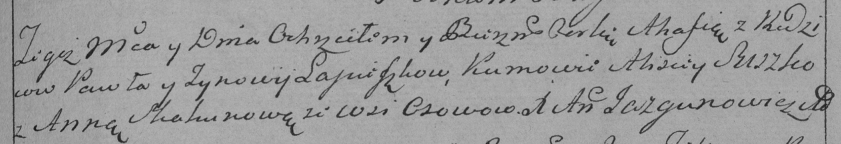 Tegoż Mca y Dnia Ochrzciłem y Bierzm Corkię Ahafią z Rodzi
cow Pawła y Zynowij Łapuiskow, Kumowie Alisiey Suszko
z Anną Skakunową ze wsi Osowow. X An Jazgunowicz